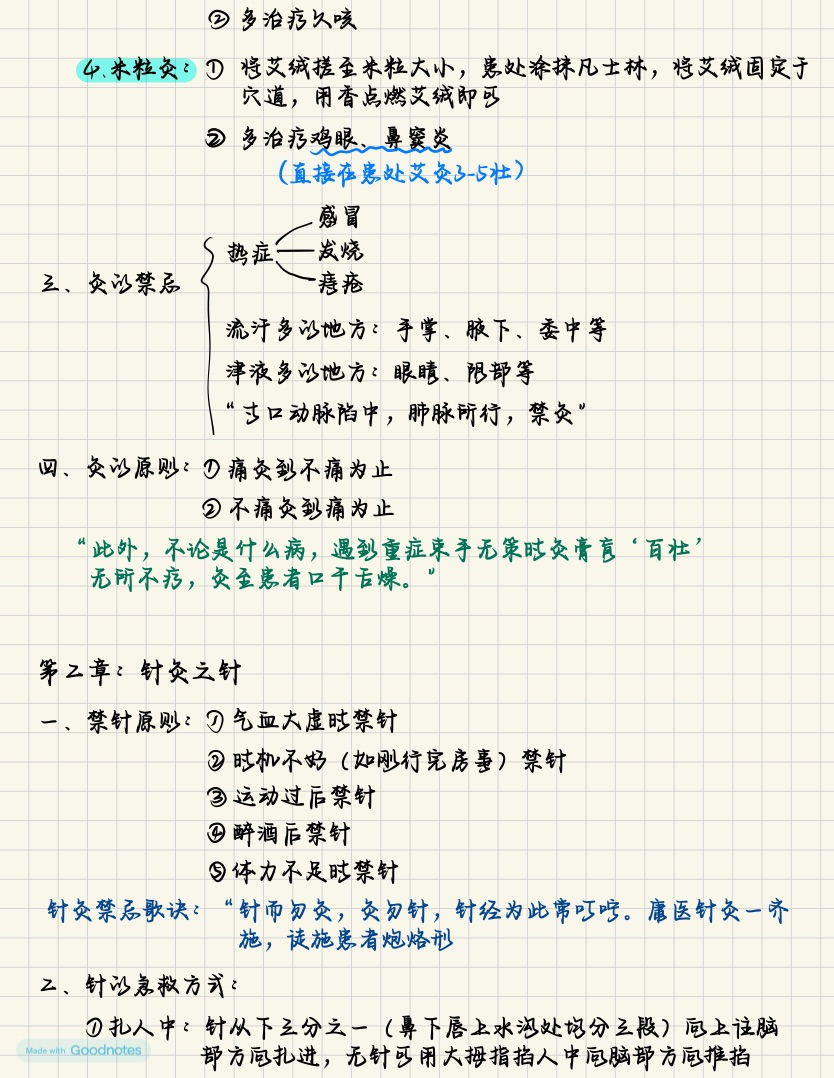 ② 多治疗久咳
4.米粒灸：① 将艾绒搓至米粒大小，患处涂抹凡士林，将艾绒固定于
穴道，用香点燃艾绒即可
② 多治疗鸡眼、鼻窦炎
（直接在患处艾灸3-5壮）
感冒
热症 发烧
三、灸的禁忌 痔疮
流汗多的地方：手掌、腋下、委中等
津液多的地方：眼睛、阴部等
“寸口动脉陷中，肺脉所行，禁灸”
四、灸的原则：① 痛灸到不痛为止
② 不痛灸到痛为止
“此外，不论是什么病，遇到重症束手无策时灸膏肓‘百壮’
无所不疗，灸至患者口干舌燥。”
第二章：针灸之针
一、禁针原则：① 气血大虚时禁针
② 时机不好（如刚行完房事）禁针
③ 运动过后禁针
④ 醉酒后禁针
⑤ 体力不足时禁针
针灸禁忌歌诀：“针而勿灸，灸勿针，针经为此常叮咛。庸医针灸一齐
施，徒施患者炮烙刑
二、针的急救方式：
① 扎人中：针从下三分之一（鼻下唇上水沟处均分三段）向上往脑
部方向扎进，无针可用大拇指掐人中向脑部方向推掐
Made with Goodnotes